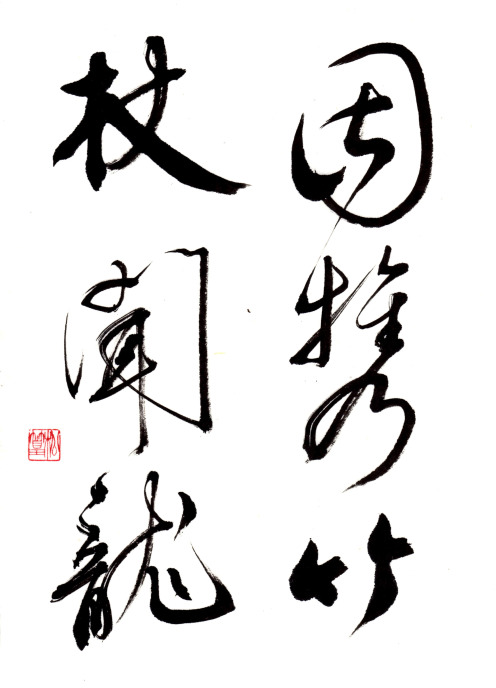 因携竹
杖聞龍